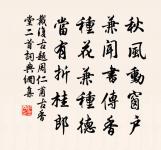 秋風動窗戶
兼聞書傳香
種花兼種德
當有折桂郎
戴復古題周仁甫古香
堂二首詞典網集